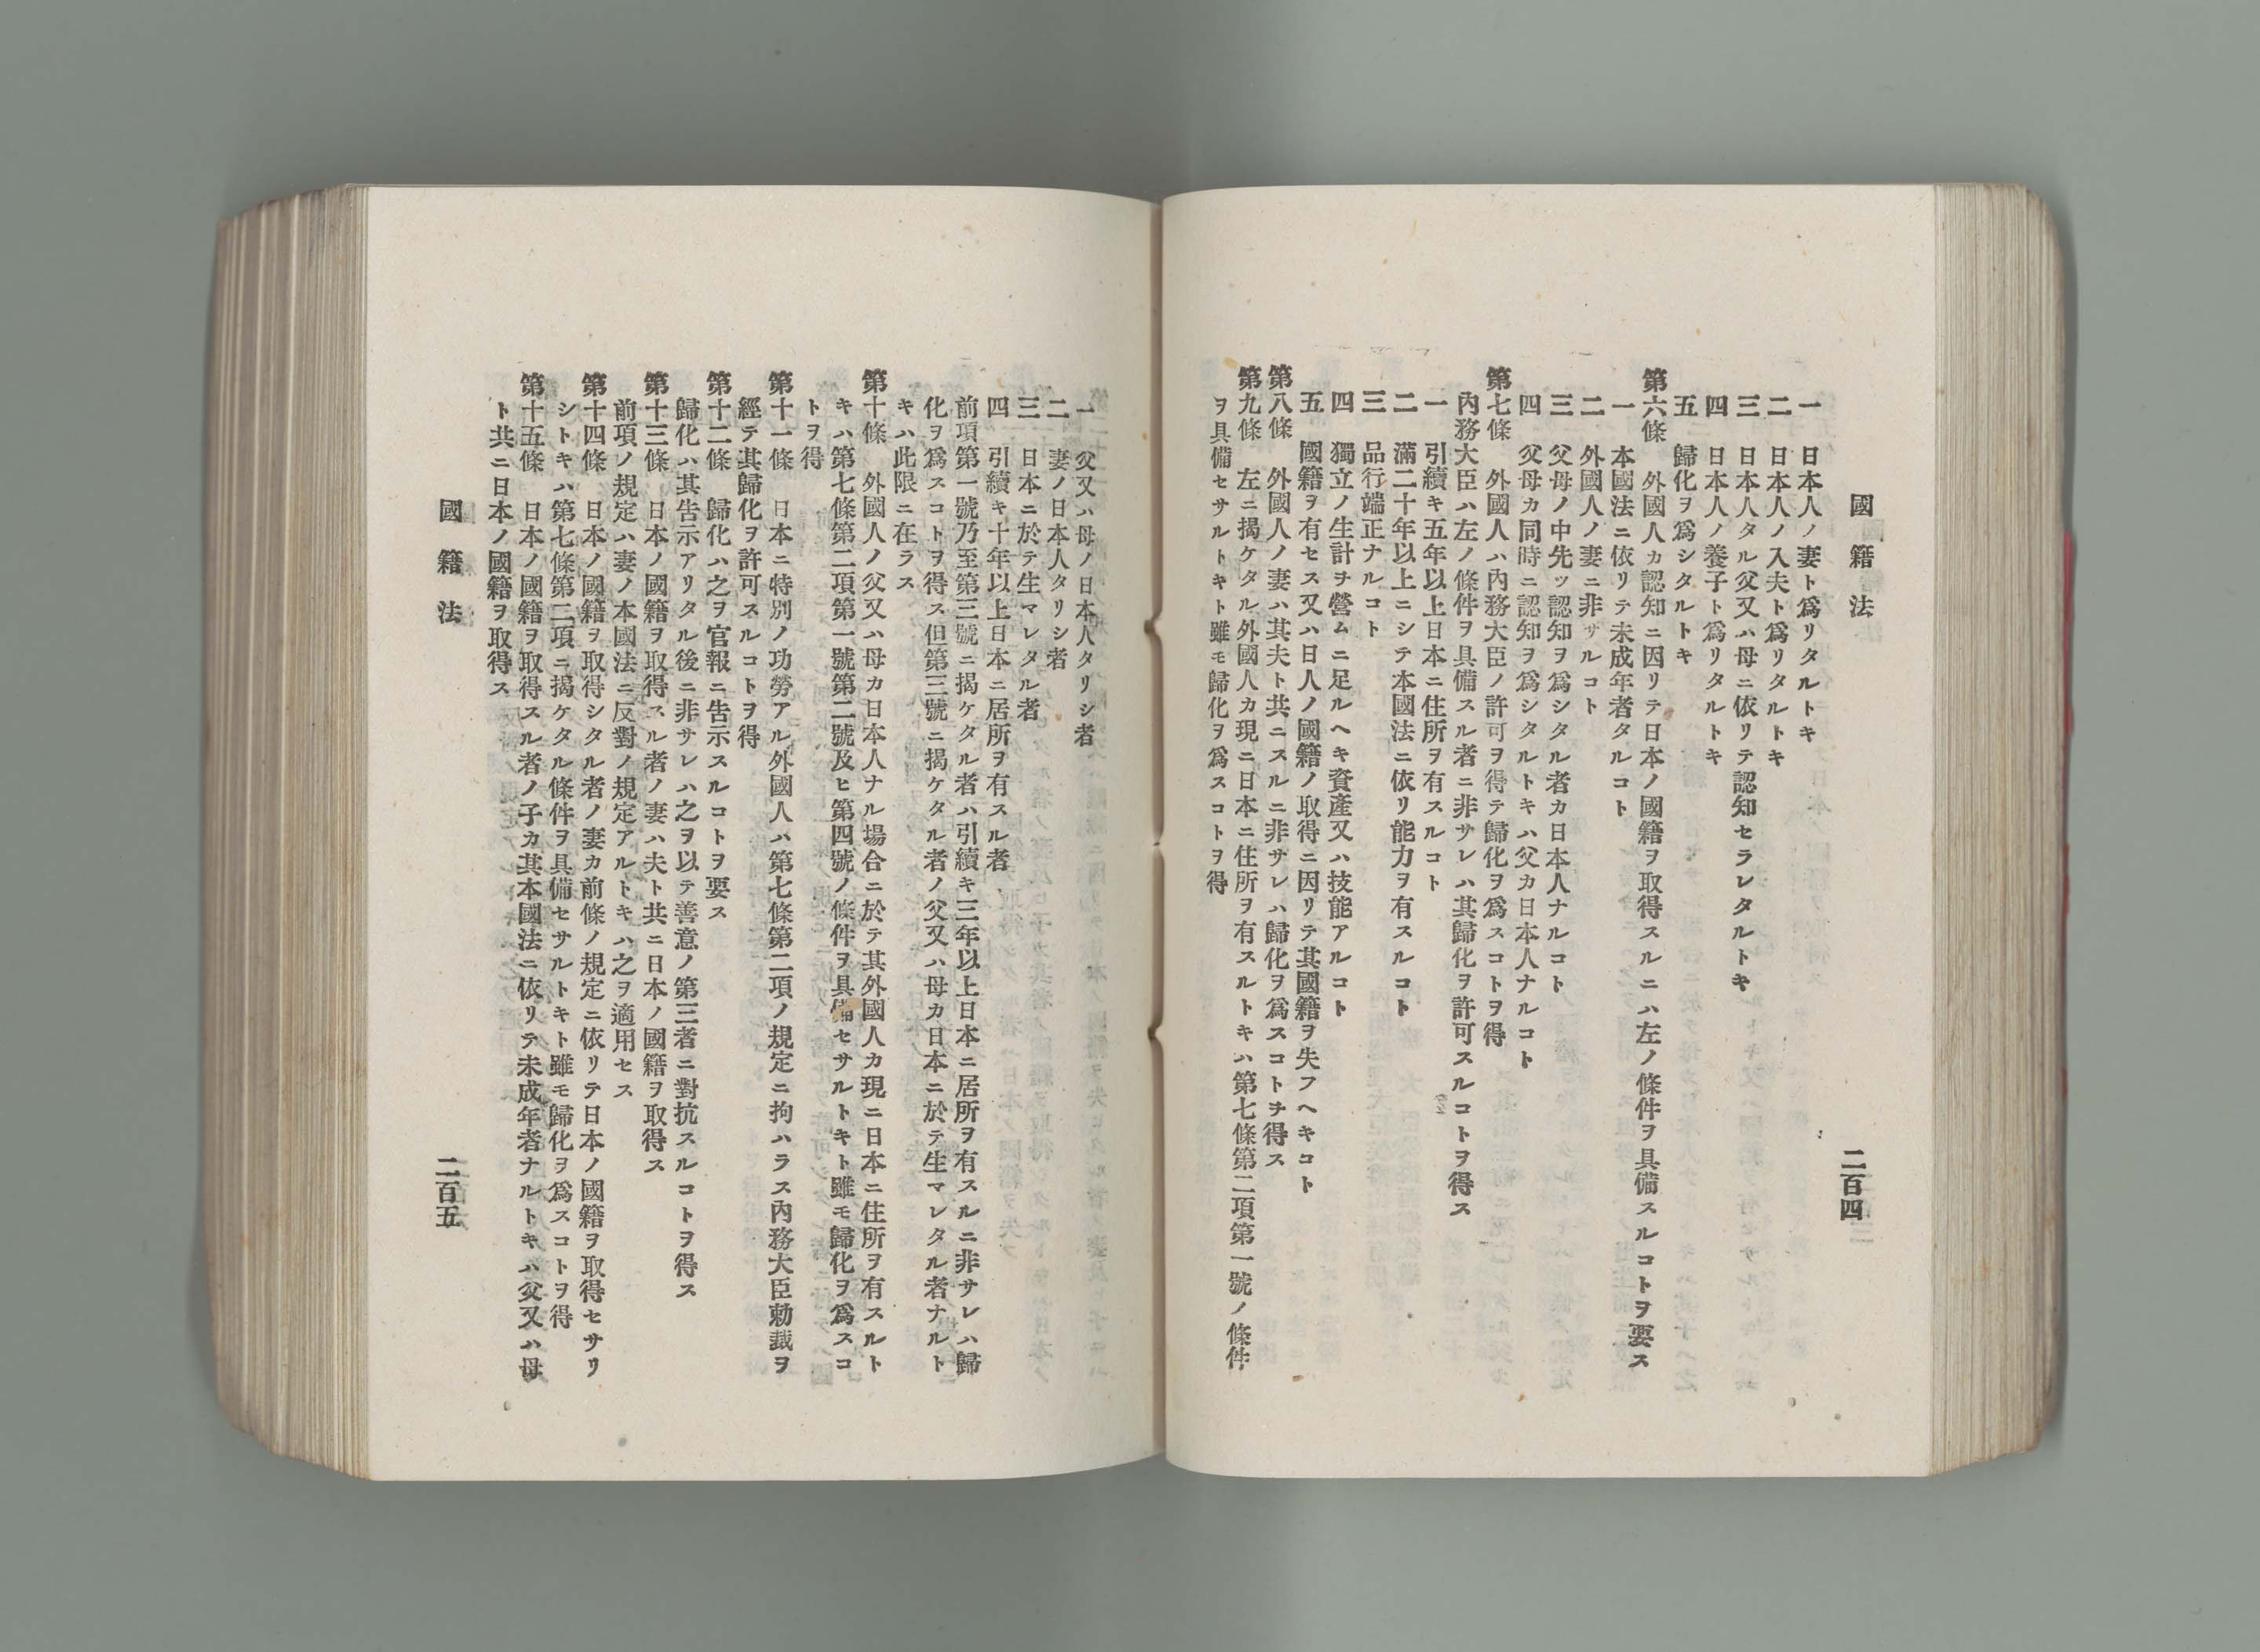 國籍法
二百四
一 日本人ノ妻ト爲リタルトキ
二 日本人ノ入夫ト爲リタルトキ
三 日本人タル父又ハ母ニ依リテ認知セラレタルトキ
四 日本人ノ養子ト爲リタルトキ
五 歸化ヲ爲シタルトキ
第六條 外國人カ認知ニ因リテ日本ノ國籍ヲ取得スルニハ左ノ條件ヲ具備スルコトヲ要ス
一 本國法ニ依リテ未成年者タルコト
二 外國人ノ妻ニ非サルコト
三 父母ノ中先ツ認知ヲ爲シタル者カ日本人ナルコト
四 父母カ同時ニ認知ヲ爲シタルトキハ父カ日本人ナルコト
第七條 外國人ハ內務大臣ノ許可ヲ得テ歸化ヲ爲スコトヲ得
內務大臣ハ左ノ條件ヲ具備スル者ニ非サレハ其歸化ヲ許可スルコトヲ得ス
一 引續キ五年以上日本ニ住所ヲ有スルコト
二 滿二十年以上ニシテ本國法ニ依リ能力ヲ有スルコト
三 品行端正ナルコト
四 獨立ノ生計ヲ營ムニ足ルヘキ資產又ハ技能アルコト
五 國籍ヲ有セス又ハ日人ノ國籍ノ取得ニ因リテ其國籍ヲ失フヘキコト
第八條 外國人ノ妻ハ其夫ト共ニスルニ非サレハ歸化ヲ爲スコトチ得ス
第九條 左ニ揭ケタル外國人カ現ニ日本ニ住所ヲ有スルトキハ第七條第二項第一號ノ條件
ヲ具備セサルトキト雖モ歸化ヲ爲スコトヲ得
一 父又ハ母ノ日本人タリシ者
二 妻ノ日本人タリシ者
三 日本ニ於テ生マレタル者
四 引續キ十年以上日本ニ居所ヲ有スル者
前項第一號乃至第三號ニ揭ケタル者ハ引續キ三年以上日本ニ居所ヲ有スルニ非サレハ歸
化ヲ爲スコトヲ得ス但第三號ニ揭ケタル者ノ父又ハ母カ日本ニ於テ生マレタル者ナルト
キハ此限ニ在ラス
第十條 外國人ノ父又ハ母カ日本人ナル場合ニ於テ其外國人カ現ニ日本ニ住所ヲ有スルト
キハ第七條第二項第一號第二號及ヒ第四號ノ條件ヲ具備セサルトキト雖モ歸化ヲ爲スコ
トヲ得
第十一條 日本ニ特別ノ功勞アル外國人ハ第七條第二項ノ規定ニ拘ハラス內務大臣勅裁ヲ
經テ其歸化ヲ許可スルコトヲ得
第十二條 歸化ハ之ヲ官報ニ告示スルコトヲ要ス
歸化ハ其告示アリタル後ニ非サレハ之ヲ以テ善意ノ第三者ニ對抗スルコトヲ得ス
第十三條 日本ノ國籍ヲ取得スル者ノ妻ハ夫ト共ニ日本ノ國籍ヲ取得ス
前項ノ規定ハ妻ノ本國法ニ反對ノ規定アルトキハ之ヲ適用セス
第十四條 日本ノ國籍ヲ取得シタル者ノ妻カ前條ノ規定ニ依リテ日本ノ國籍ヲ取得セサリ
シトキハ第七條第二項ニ揭ケタル條件ヲ具備セサルトキト雖モ歸化ヲ爲スコトヲ得
第十五條 日本ノ國籍ヲ取得スル者ノ子カ其本國法ニ依リテ未成年者ナルトキハ父又ハ母
ト共ニ日本ノ國籍ヲ取得ス
國籍法
二百五